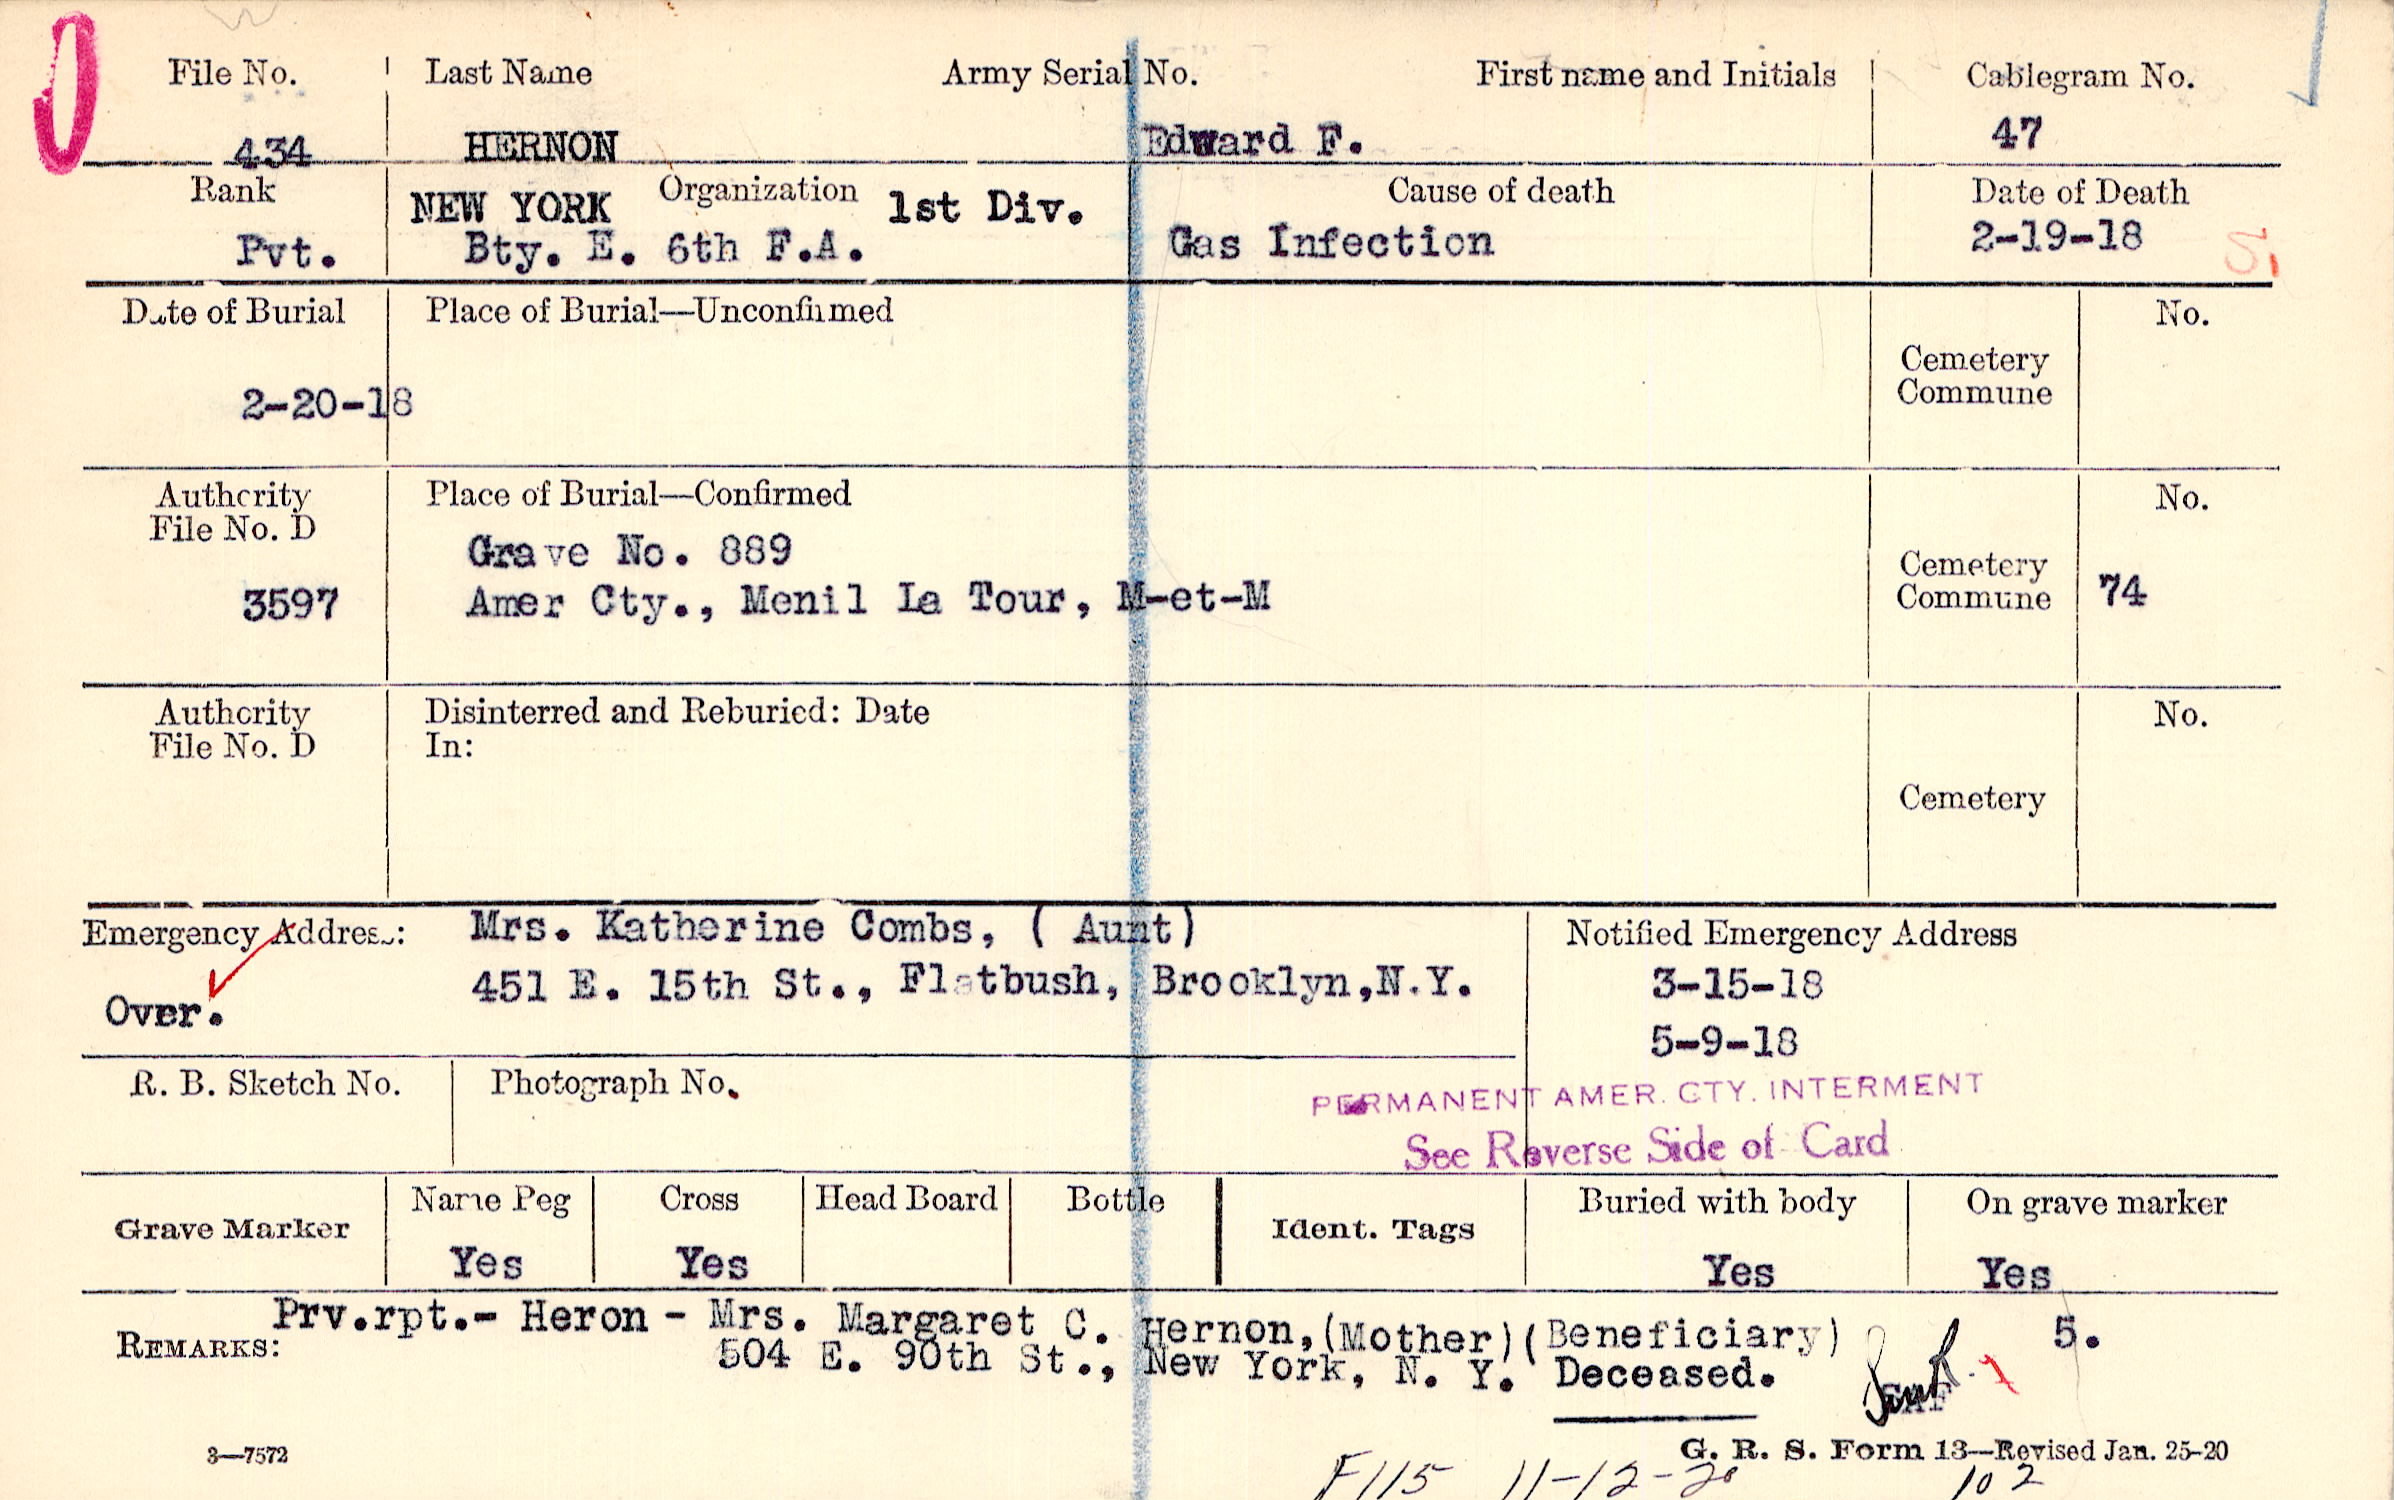 File No. Last Name Army Serial No. First name and Initials Cablegram No.
434 HERNON Edward F. 47
Rank NEW YORK Organization 1st Div. Cause of death Date of Death
Pvt. Bty. E. 6th F.A. Gas Infection 2-19-18
5.
Date of Burial Place of Burial—Unconfirmed No.
Cemetery
Commune
2-20-18
Authority Place of Burial—Confirmed No.
File No. D
Grave No. 889
Cemetery
3597 Amer Cty., Menil La Tour, M-et-M Commune 74
Authority Disinterred and Reburied: Date No.
File No. D In:
Cemetery
Emergency Address: Mrs. Katherine Combs, ( Aunt) Notified Emergency Address
451 E. 15th St., Flatbush, Brooklyn,N.Y. 3-15-18
Over. 5-9-18
R. B. Sketch No. Photograph No.
PERMANENT AMER. CTY. INTERMENT
See Reverse Side of Card
Grave Marker Name Peg Cross Head Board Bottle Ident. Tags Buried with body On grave marker
Yes Yes Yes Yes
Prv.rpt.- Heron - Mrs. Margaret C. Hernon,(Mother)(Beneficiary) 5.
REMARKS: 504 E. 90th St., New York, N. Y. Deceased.
3—7572 G. R. S. Form 13—Revised Jan. 25-20
F115 11-12-20 102